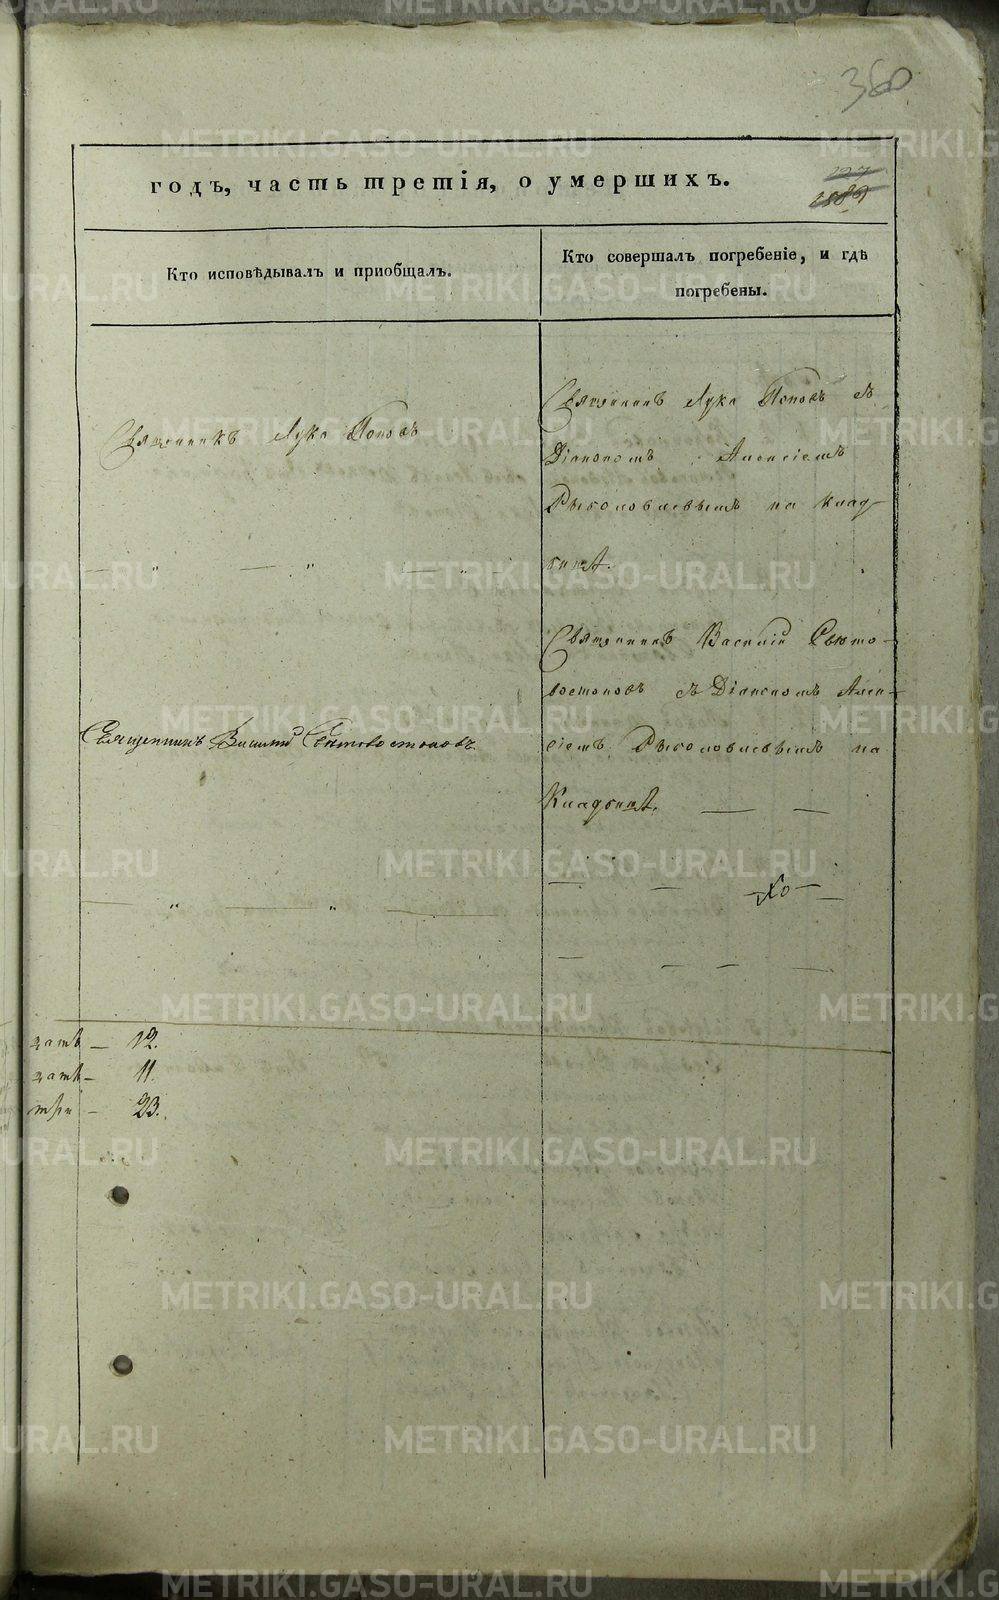 360
годъ, часть третія, о умершихъ.
Кто исповѣдывалъ и приобщалъ.
Кто совершалъ погребеніе, и гдѣ
погребены.
Священникъ Лука Поповъ
Священникъ Лука Поповъ съ
Діакономъ Алексіемъ
на клад-
бищѣ.
Священникъ Василій Свѣто-
востоковъ съ Діакономъ Алек-
сіемъ на
Кладбищѣ.
Священникъ Василій Свѣтовостоковъ.
12.
11.
23.
METRIKI.GASO-URAL.RU